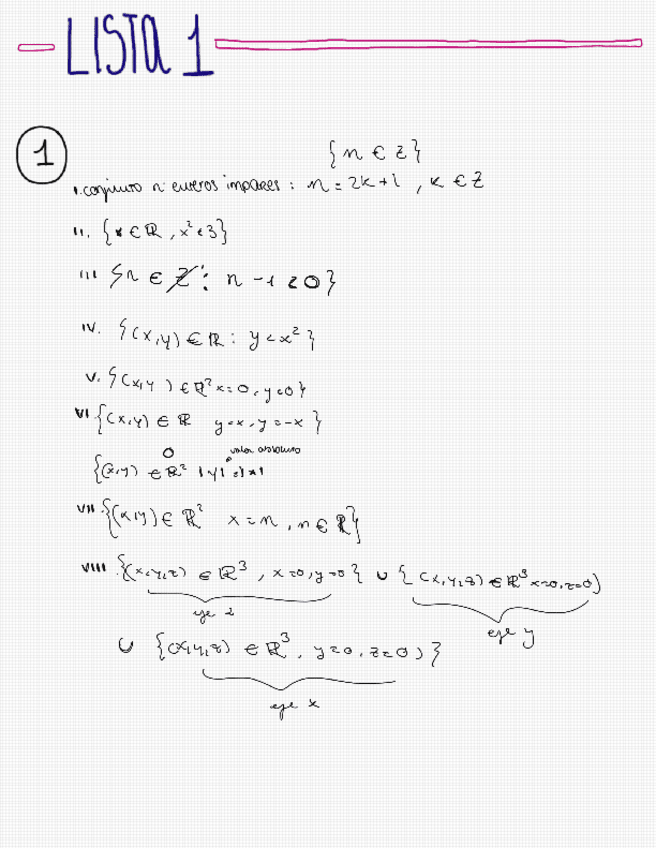 LISTA 1
1
{n ∈ Z}
I. conjunto nº enteros impares : n = 2k+1 , k ∈ Z
II. {x ∈ ℝ , x² < 3}
III {n ∈ Z : n - 1 ≥ 0}
IV. {(x,y) ∈ ℝ : y < x²}
V. {(x,y) ∈ ℝ² x=0, y=0}
VI {(x,y) ∈ ℝ y=x, y=-x}
O valor absoluto
{(x,y) ∈ ℝ² |y|=|x|
VII {(x,y) ∈ ℝ² x=n, n ∈ ℝ}
VIII {(x,y,z) ∈ ℝ³, x=0, y=0} ∪ {(x,y,z) ∈ ℝ³ x=0, z=0}
eje z
eje y
∪ {(x,y,z) ∈ ℝ³, y=0, z=0)}
eje x